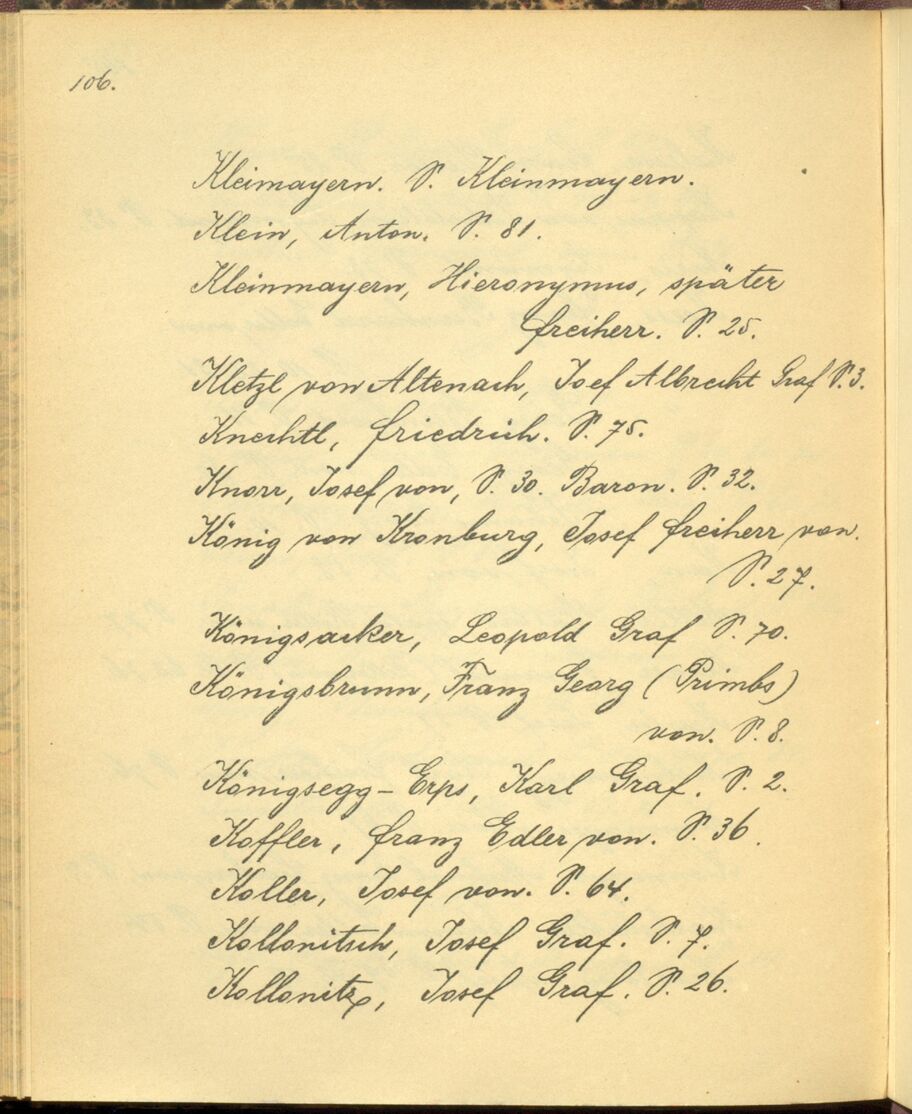 106.
Kleimayern. S. Kleinmayern.
Klein, Anton. S. 81.
Kleinmayern, Hieronymus, später
freiherr. S. 25.
Kletzl von Altenach, Josef Albrecht Graf S. 3.
Knechtl, friedrich. S. 75.
Knorr, Josef von, S. 30. Baron. S. 32.
König von Kronburg, Josef freiherr von.
S. 27.
Königsacker, Leopold Graf S. 70.
Königsbrunn, Franz Georg (Primbs)
von. S. 8.
Königsegg-Erps, Karl Graf. S. 2.
Koffler, franz Edler von. S. 36.
Koller, Josef von. S. 64.
Kollonitsch, Josef Graf. S. 7.
Kollonitz, Josef Graf. S. 26.